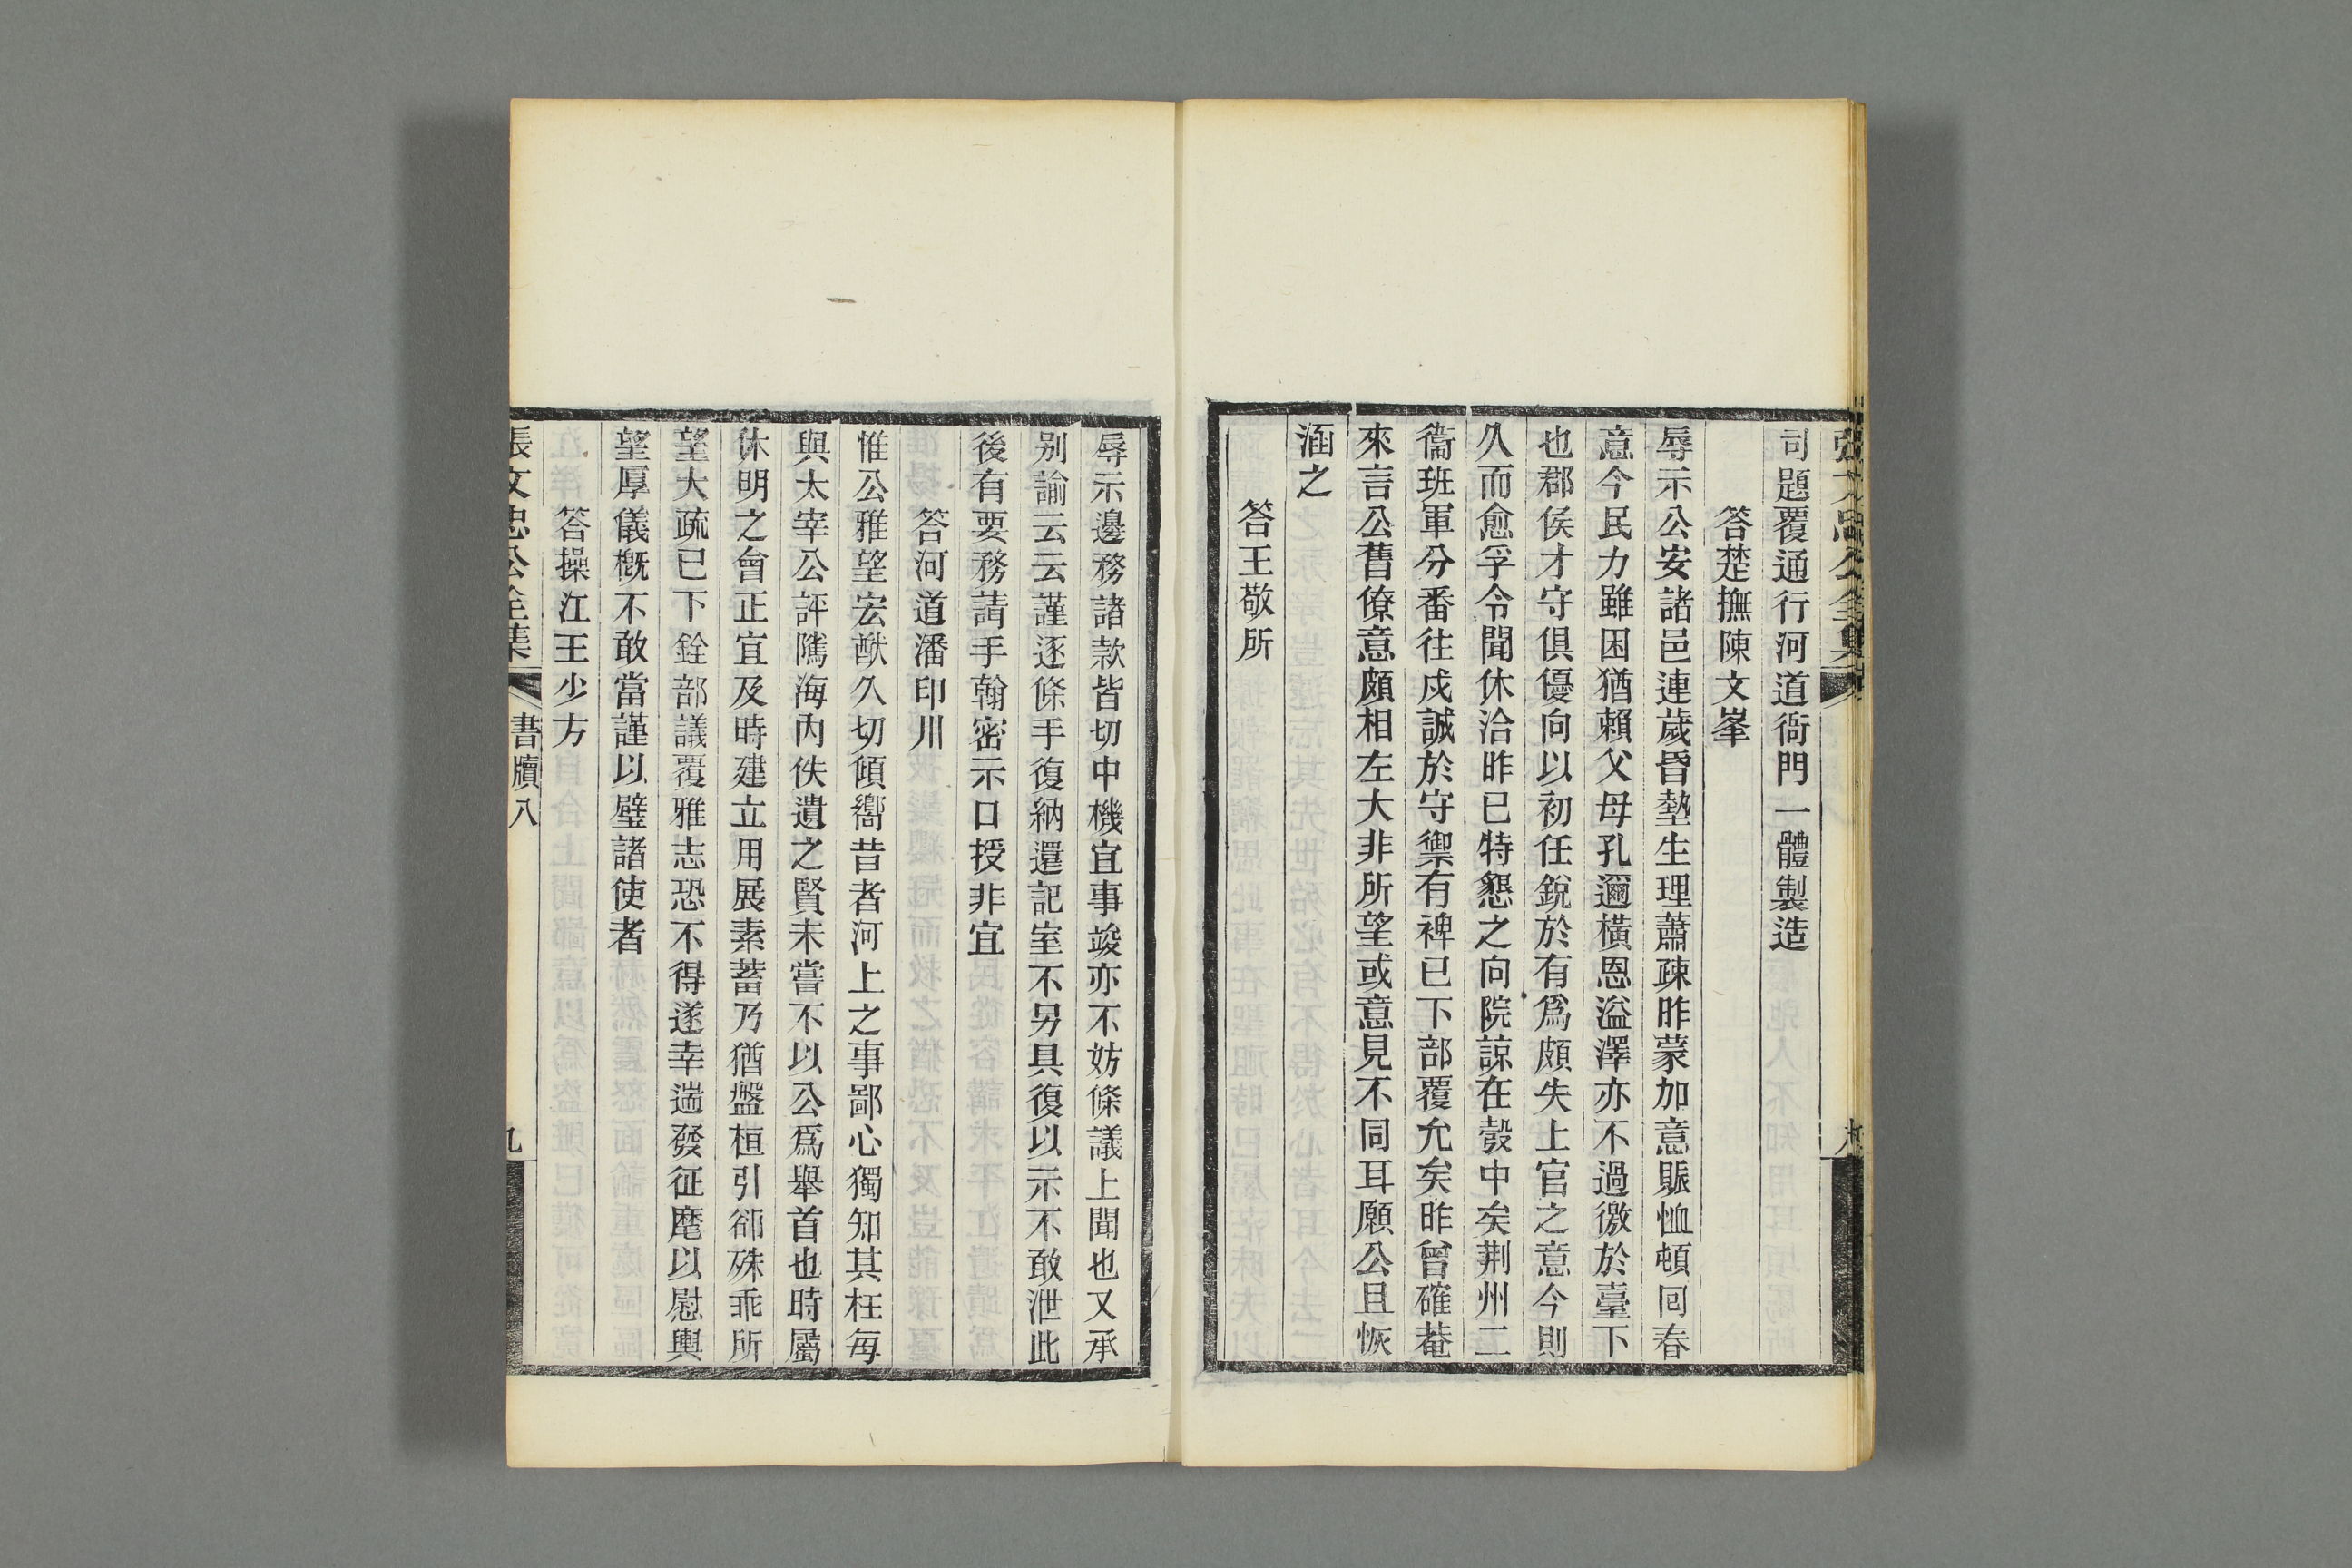 司題覆通行河道衙門一體製造
答楚撫陳文峯
辱示公安諸邑連歲昏墊生理蕭疎昨蒙加意賑恤頓回春
意今民力雖困猶賴父母孔邇橫恩溢澤亦不過徼於臺下
也郡侯才守俱優向以初任銳於有爲頗失上官之意今則
久而愈孚令聞休洽昨已特懇之向院諒在彀中矣荆州二
衞班軍分番往戍誠於守禦有裨已下部覆允矣昨曾確菴
來言公舊僚意頗相左大非所望或意見不同耳願公且恢
涵之
答王敬所
辱示邊務諸款皆切中機宜事竣亦不妨條議上聞也又承
别諭云云謹逐條手復納還記室不另具復以示不敢泄此
後有要務請手翰密示口授非宜
答河道潘印川
惟公雅望宏猷久切傾嚮昔者河上之事鄙心獨知其枉每
與太宰公評隲海內佚遺之賢未嘗不以公爲舉首也時屬
休明之會正宜及時建立用展素蓄乃猶盤桓引郤殊乖所
望大疏已下銓部議覆雅志恐不得遂幸遄發征麾以慰輿
望厚儀概不敢當謹以璧諸使者
答操江王少方
張文忠公全集 書牘八 九